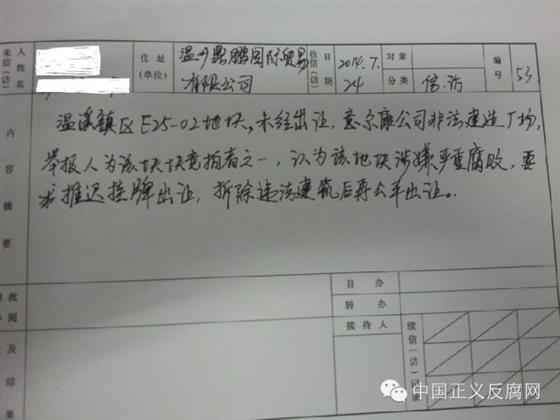 来信(访)人姓名
住址(单位)
温州鼎鹏国际贸易有限公司
收信(访)日期
2014.7.24
对象分类
信访
编号
53.
内容摘要
温溪镇区E25-02地块,未经出让,意尔康公司非法建造厂场,
举报人为该块块竞拍者之一,认为该地块涉嫌严重腐败,要
求推迟挂牌出让,拆除违法建筑后再公平出让。
批
自办
转办
接待人
续信(访)记录
及结果
中国正义反腐网